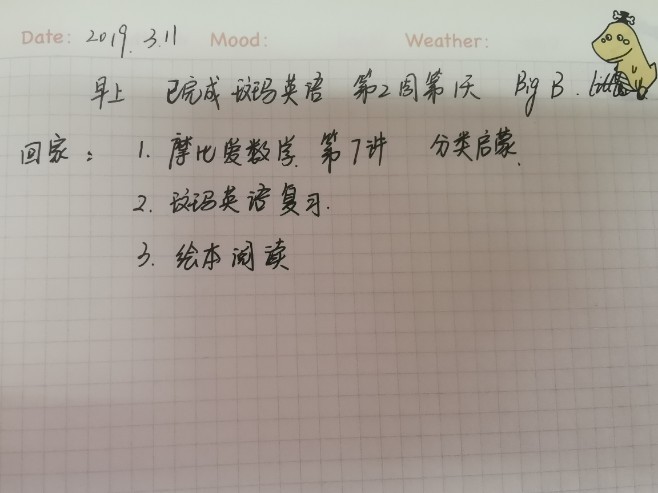 Date: 2019. 3.11 Mood: Weather:
早上 已完成斑玛英语 第2周第1天 Big B.
回家: 1. 摩比爱数学 第7讲 分类启蒙.
2. 斑玛英语复习.
3. 绘本阅读